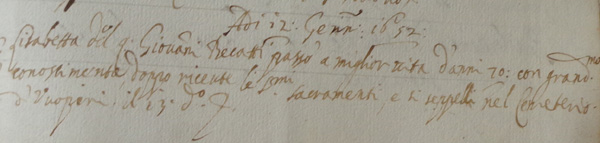 Adi 12: Genn: 1652:
Elisabetta del q. Giovani Recatti passò a miglior vita d'anni 70: con grand.mo
conoscimento, doppo riceute le smi Sacramenti, e si seppellì nel Cemeterio
d' il 13. do.